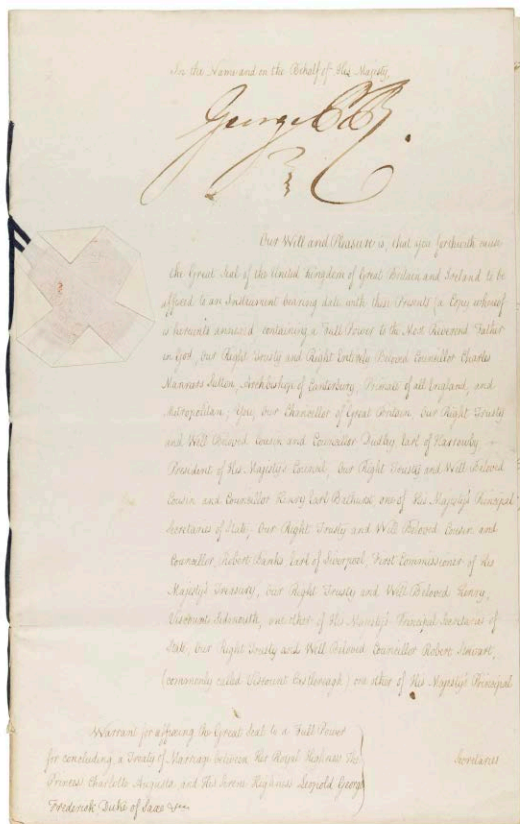 In the Name and on the Behalf of His Majesty,
George P R
Our Will and Pleasure is, that you forthwith cause
the Great Seal of the United Kingdom of Great Britain and Ireland to be
affixed to an Instrument bearing date with these Presents (a Copy whereof
is herewith annexed) containing a Full Power to the Most Reverend Father
in God, Our Right Trusty and Right Entirely Beloved Councillor Charles
Manners Sutton, Archbishop of Canterbury, Primate of all England, and
Metropolitan; You, Our Chancellor of Great Britain, Our Right Trusty
and Well Beloved Cousin and Councillor Dudley, Earl of Harrowby
President of His Majesty's Council, Our Right Trusty and Well Beloved
Cousin and Councillor Henry Earl Bathurst, one of His Majesty's Principal
Secretaries of State, Our Right Trusty and Well Beloved Cousin and
Councillor, Robert Banks Earl of Liverpool, First Commissioner of His
Majesty's Treasury, Our Right Trusty and Well Beloved Henry,
Viscount Sidmouth, another of His Majesty's Principal Secretaries of
State, Our Right Trusty and Well Beloved Councillor Robert Stewart,
(commonly called Viscount Castlereagh) one other of His Majesty's Principal
Secretaries
Warrant for affixing the Great Seal to a Full Power
for concluding a Treaty of Marriage between Her Royal Highness The
Princess Charlotte Augusta, and His Serene Highness Leopold George
Frederick Duke of Saxe